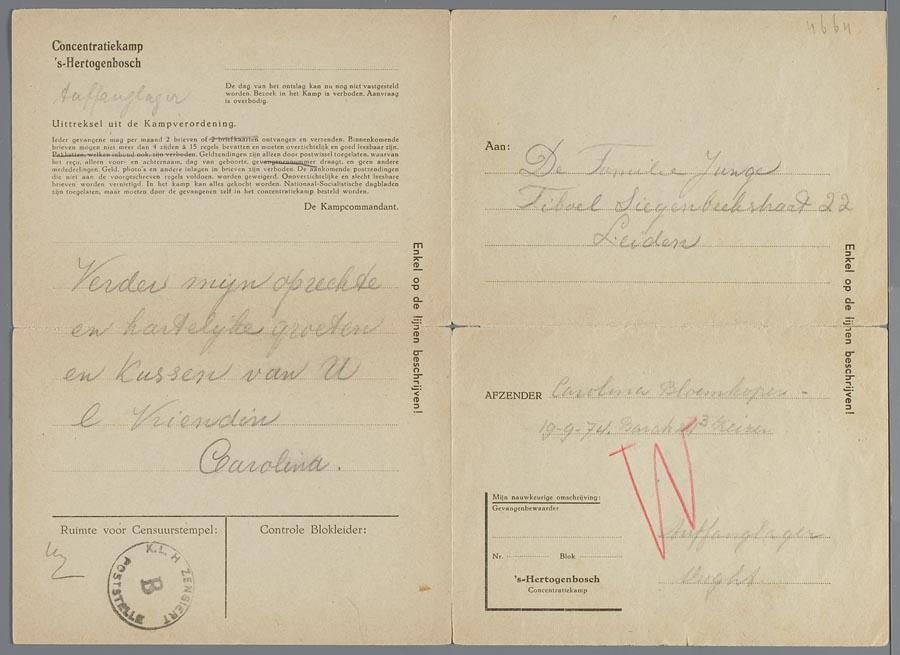 Concentratiekamp
's-Hertogenbosch
Auffanglager
De dag van het ontslag kan nu nog niet vastgesteld
worden. Bezoek in het Kamp is verboden. Aanvraag
is overbodig.
Uittreksel uit de Kampverordening.
Ieder gevangene mag per maand 2 brieven of 2 briefkaarten ontvangen en verzenden. Binnenkomende
brieven mogen niet meer dan 4 zijden à 15 regels bevatten en moeten overzichtelijk en goed leesbaar zijn.
Pakketten, welken inhoud ook, zijn verboden. Geldzendingen zijn alleen door postwissel toegelaten, waarvan
het reçu, alleen voor- en achternaam, dag van geboorte, gevangenennummer draagt, en geen andere
mededeelingen. Geld, photo's en andere inlagen in brieven zijn verboden. De aankomende postzendingen
die niet aan de voorgeschreven regels voldoen, worden geweigerd. Onoverzichtelijke en slecht leesbare
brieven worden vernietigd. In het kamp kan alles gekocht worden. Nationaal-Socialistische dagbladen
zijn toegelaten, maar moeten door de gevangenen zelf in het concentratiekamp besteld worden.
De Kampcommandant.
Verder mijn oprechte
en hartelijke groeten
en Kussen van U
l Vriendin
Carolina.
Enkel op de lijnen beschrijven!
Ruimte voor Censuurstempel:
Controle Blokleider:
K.L.H ZENSIERT
B
POSTSTELLE
4664
Aan:
De Familie Junge
Tiboel Siegenbeekstraat 22
Leiden
Enkel op de lijnen beschrijven!
AFZENDER Carolina Bloemkoper -
19-9-74. Barak
W
Mijn nauwkeurige omschrijving:
Gevangenbewaarder
Nr. Blok
's-Hertogenbosch
Concentratiekamp
Auffanglager
Vught